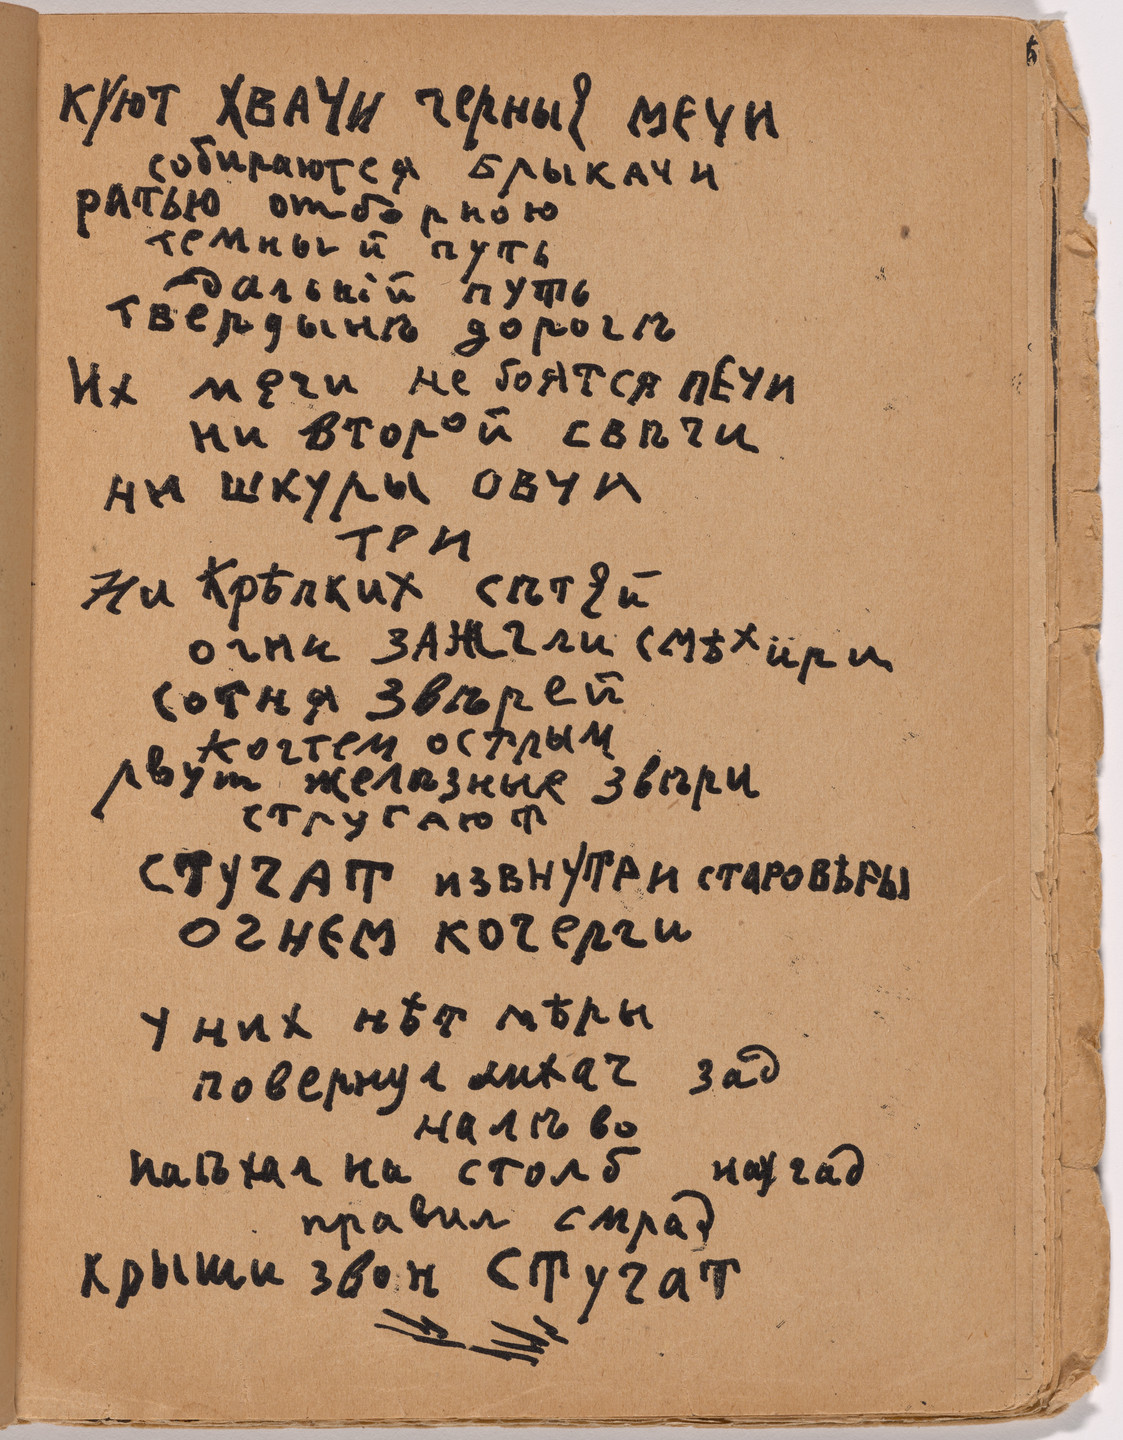 куют хвачи черные мечи
собираются брыкачи
ратью отборною
темный путь
дальнiй путь
твердынѣ дорогѣ
Их мечи не боятся печи
ни второй свѣчи
ни шкуры овчи
три
Ни крѣпких сѣтей
огни зажгли смѣхири
сотня звѣрей
когтем острым
рвут желѣзные звѣри
стругают
стучат извнутри староверѣры
огнем кочерги
у них нѣт мѣры
повернул лихач зад
налѣво
наѣхал на столб наугад
правил смрад
крыши звон стучат